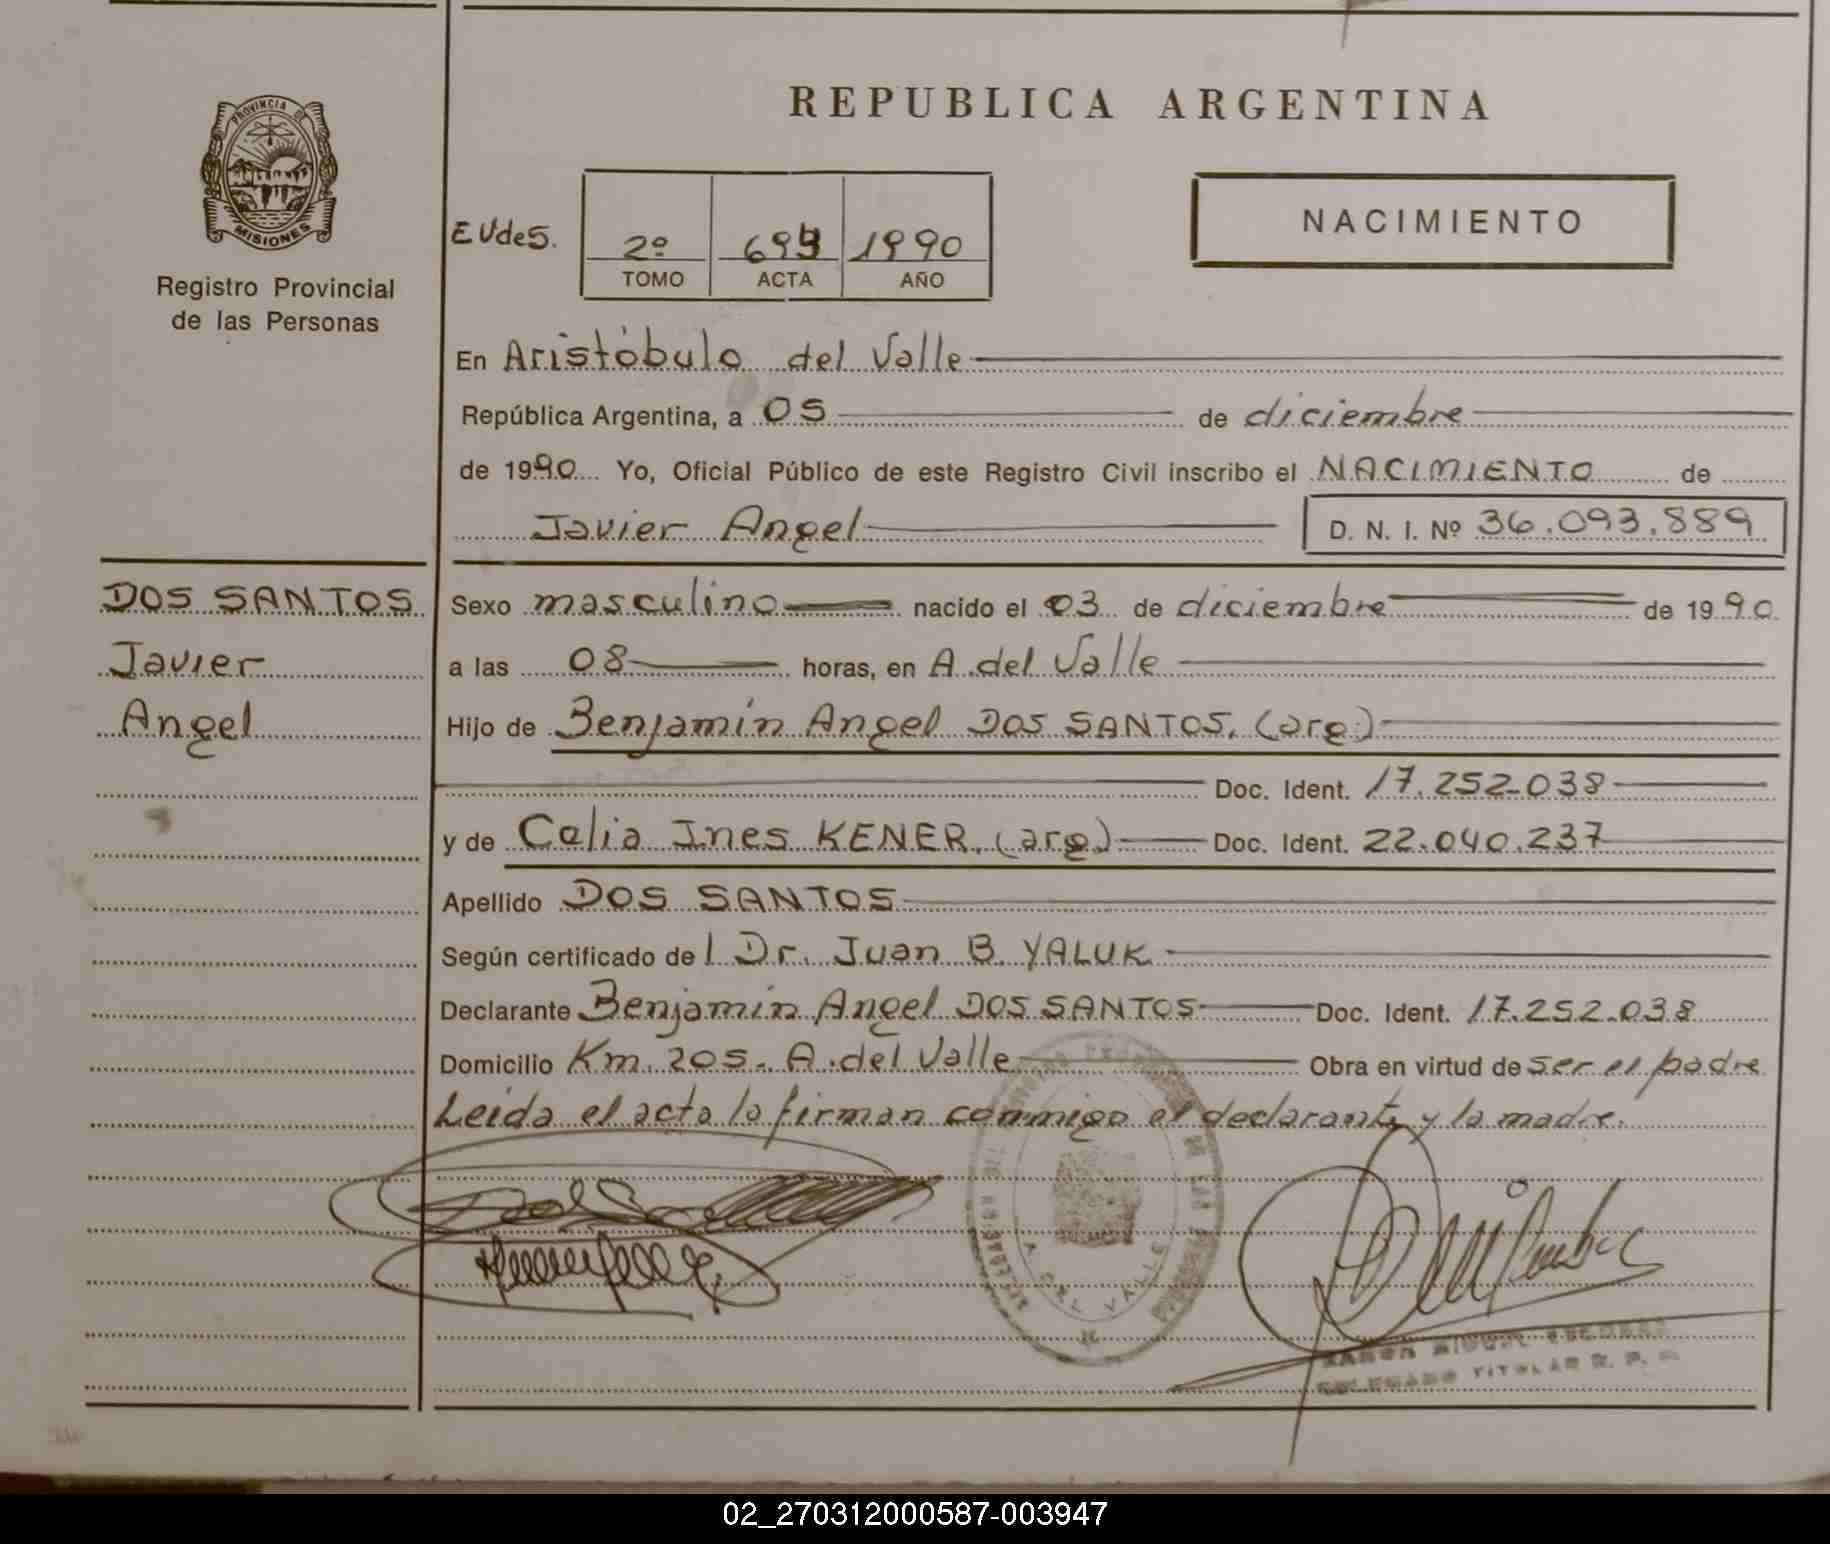 REPUBLICA ARGENTINA
PROVINCIA DE
MISIONES
Registro Provincial
de las Personas
EVdeS.
2º 1990
TOMO ACTA AÑO
NACIMIENTO
En Aristóbulo del Valle
República Argentina, a 05 de diciembre
de 1990 Yo, Oficial Público de este Registro Civil inscribo el NACIMIENTO de
Javier Angel D. N. I. Nº 36.093.889
DOS SANTOS
Javier
Angel
Sexo masculino nacido el 03 de diciembre de 1990
a las 08 horas, en A. del Valle
Hijo de Benjamín Angel DOS SANTOS. (arg)
Doc. Ident. 17.252.038
y de Celia Ines KENER. (arg) Doc. Ident. 22.040.237
Apellido DOS SANTOS
Según certificado del Dr. Juan B. YALUK
Declarante Benjamín Angel DOS SANTOS Doc. Ident. 17.252.038
Domicilio Km. 205. A. del Valle Obra en virtud de ser el padre
Leída el acta la firman conmigo el declarante y la madre.
A. DEL VALLE
TITULAR R. P.
02_270312000587-003947